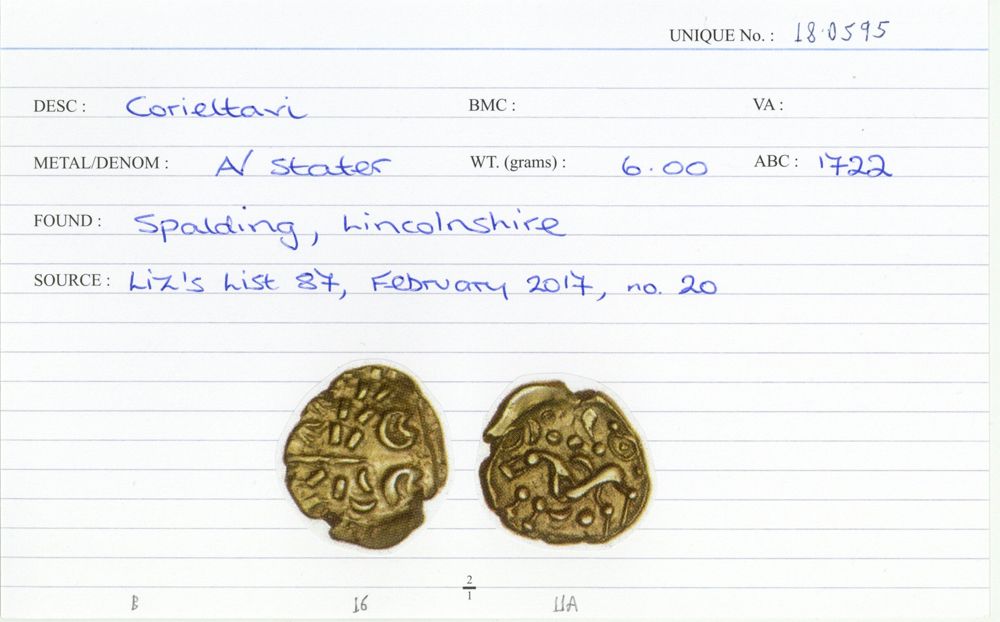 UNIQUE No. : 18.0595
DESC : Corieltavi BMC : VA :
METAL/DENOM : A/ Stater WT. (grams) : 6.00 ABC : 1722
FOUND : Spalding, Lincolnshire
SOURCE : Liz's List 87, February 2017, no. 20
2
1
B 16 11A